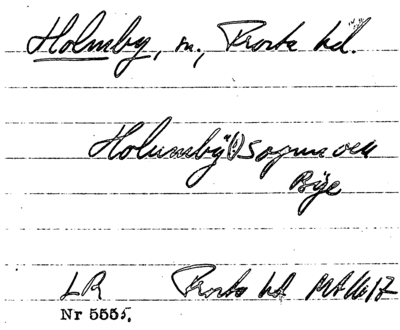 Holmby, sn, Frosta hd.
Holumby(:) Sognn och
Bye
LR Frosta hd
Nr 5555.